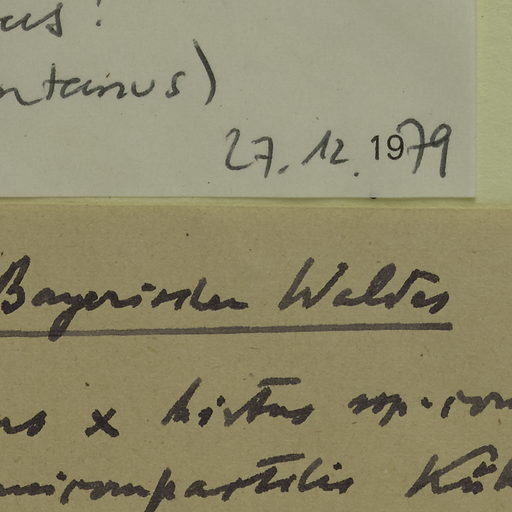 us!
ntanus)
27. 12. 1979
Bayerischen Waldes
us x hirtus ssp.